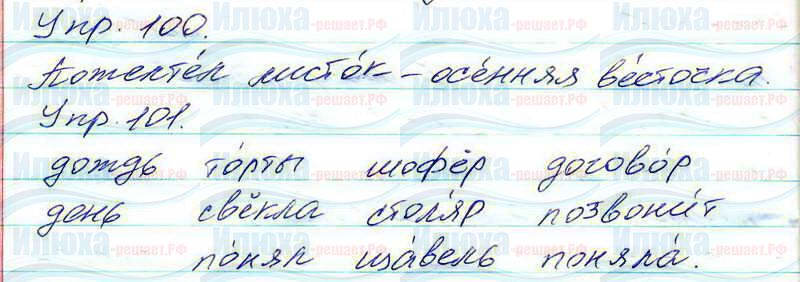 Упр. 100.
Пожелте́л листо́к – осе́нняя ве́сточка.
Упр. 101.
дождь то́рты шофёр догово́р
день свёкла столя́р позвони́т
по́нял щаве́ль поняла́.